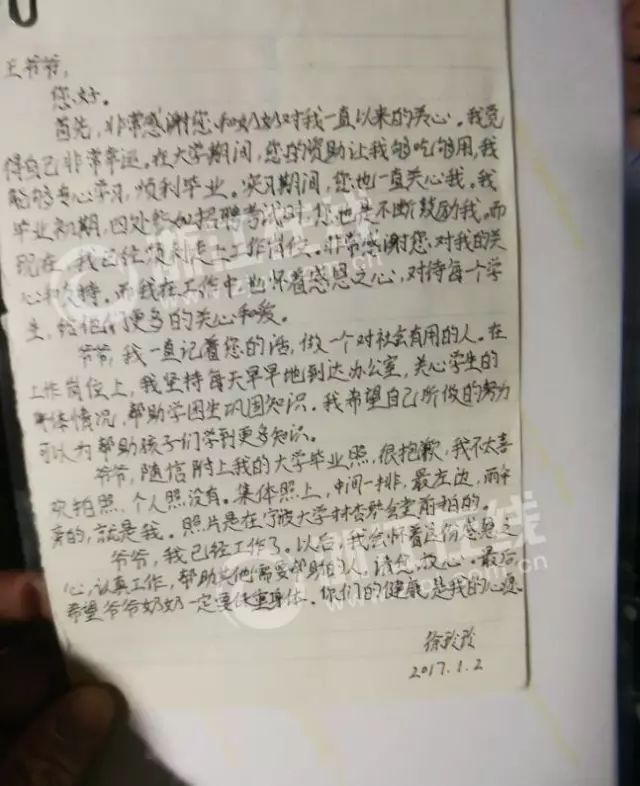 王爷爷,
您好。
首先,非常感谢您和奶奶对我一直以来的关心。我觉
得自己非常幸运。在大学期间,您的资助让我够吃够用,我
能够专心学习,顺利毕业。实习期间,您也一直关心我。我
毕业初期,四处参加招聘考试时,您也是不断鼓励我。而
现在,我已经顺利走上工作岗位。非常感谢您,对我的关
心和支持。而我在工作中,也怀着感恩之心,对待每个学
生,给他们更多的关心和爱。
爷爷,我一直记着您的话,做一个对社会有用的人。在
工作岗位上,我坚持每天早早地到达办公室,关心学生的
身体情况,帮助学困生巩固知识。我希望自己所做的努力
可以为帮助孩子们学到更多知识。
爷爷,随信附上我的大学毕业照,很抱歉,我不太喜
欢拍照,个人照没有。集体照上,中间一排,最左边,
的,就是我。照片是在宁波大学林杏琴会堂前拍的。
爷爷,我已经工作了。以后,我会怀着这份感恩之
心,认真工作,帮助其他需要帮助的人,请您放心。最后,
希望爷爷奶奶一定要保重身体。你们的健康是我的心愿。
徐
2017.1.2